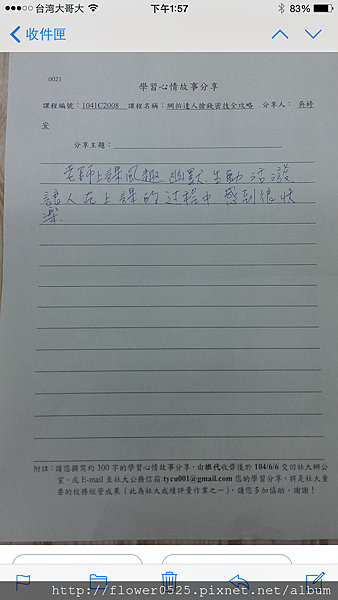 台湾大哥大 下午1:57 83%
收件匣
0021
學習心情故事分享
課程編號：1041C2008 課程名稱：網拍達人搶錢密技全攻略 分享人： 吳婷
安
分享主題：
老師上課風趣、幽默、生動活潑、
讓人在上課的过程中感到很快
樂。
附註：請您撰寫約 300 字的學習心情故事分享，由班代收齊後於 104/6/6 交回社大辦公
室。或 E-mail 至社大公務信箱:tycu001@gmail.com 您的學習分享，將是社大重
要的校務經營成果（此為社大成績評量作業之一），請您多加協助，謝謝！
http://flower0525.pixnet.net/album